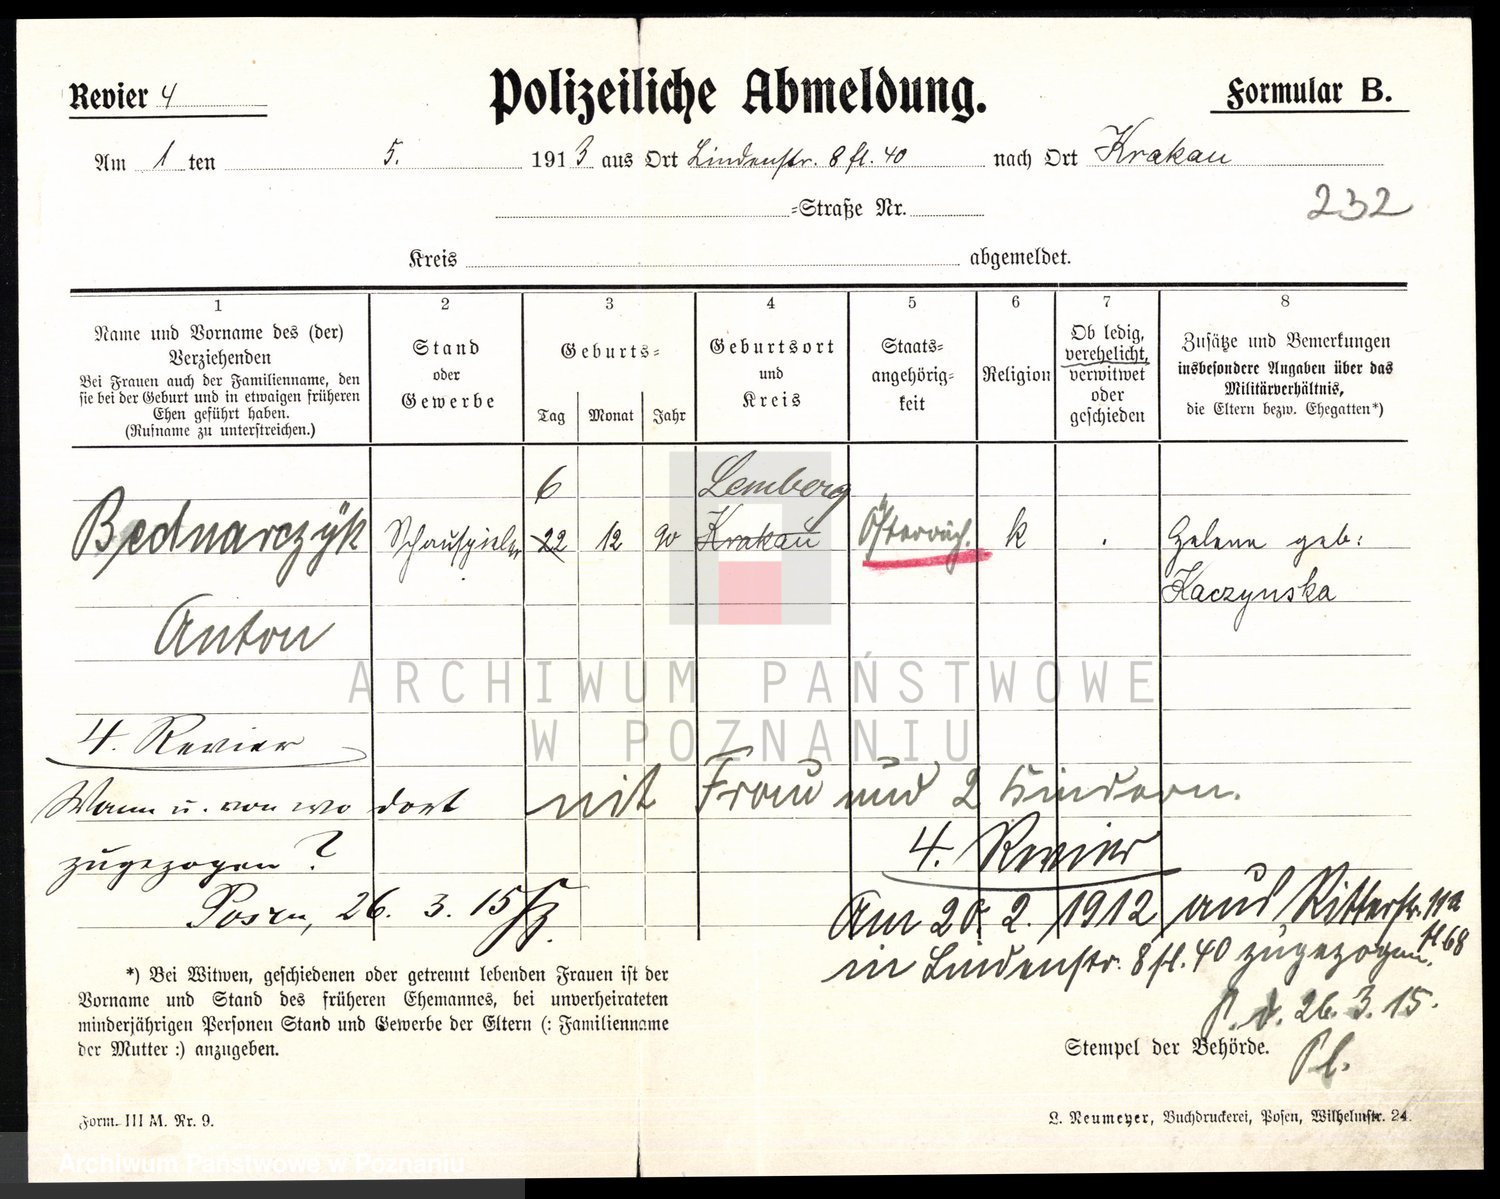 Revier 4
Polizeiliche Abmeldung.
Formular B.
Am 1 ten 5. 1913 aus Ort Lindenstr. 8 fl. 40 nach Ort Krakau
-Straße Nr.
232
Kreis abgemeldet.
1 2 3 4 5 6 7 8
Name und Vorname des (der)
Verziehenden
Bei Frauen auch der Familienname, den
sie bei der Geburt und in etwaigen früheren
Ehen geführt haben.
(Rufname zu unterstreichen.)
Stand
oder
Gewerbe
Geburts-
Tag Monat Jahr
Geburtsort
und
Kreis
Staats-
angehörig-
keit
Religion
Ob ledig,
verehelicht,
verwitwet
oder
geschieden
Zusätze und Bemerkungen
insbesondere Angaben über das
Militärverhältnis,
die Eltern bezw. Ehegatten*)
6 Lemberg
Bednarczyk Schauspieler 22 12 90 Krakau Österreich. k . Helene geb:
Kaczynska
Anton
ARCHIWUM PAŃSTWOWE
W POZNANIU
4. Revier
Wann u. von wo dort mit Frau und 2 Kindern.
zugezogen?
4. Revier
Posen, 26. 3. 15
Am 20. 2. 1912 aus Ritterstr. 11a
fl 68
in Lindenstr. 8 fl. 40 zugezogen.
P. d. 26. 3. 15.
Pl.
*) Bei Witwen, geschiedenen oder getrennt lebenden Frauen ist der
Vorname und Stand des früheren Ehemannes, bei unverheirateten
minderjährigen Personen Stand und Gewerbe der Eltern (: Familienname
der Mutter :) anzugeben.
Stempel der Behörde.
Form. III M. Nr. 9.
L. Neumeyer, Buchdruckerei, Posen, Wilhelmstr. 24.
Archiwum Państwowe w Poznaniu